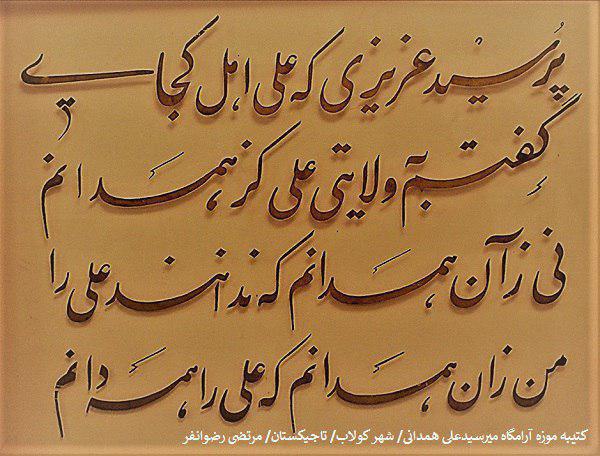 پرسید عزیزی که علی اهل کجایی
گفتم به ولایتی علی کز همدانم
نی زآن همدانم که ندانند علی را
من زان همدانم که علی را همه دانم
کتیبه موزه آرامگاه میرسیدعلی همدانی/ شهر کولاب/ تاجیکستان/ مرتضی رضوانفر